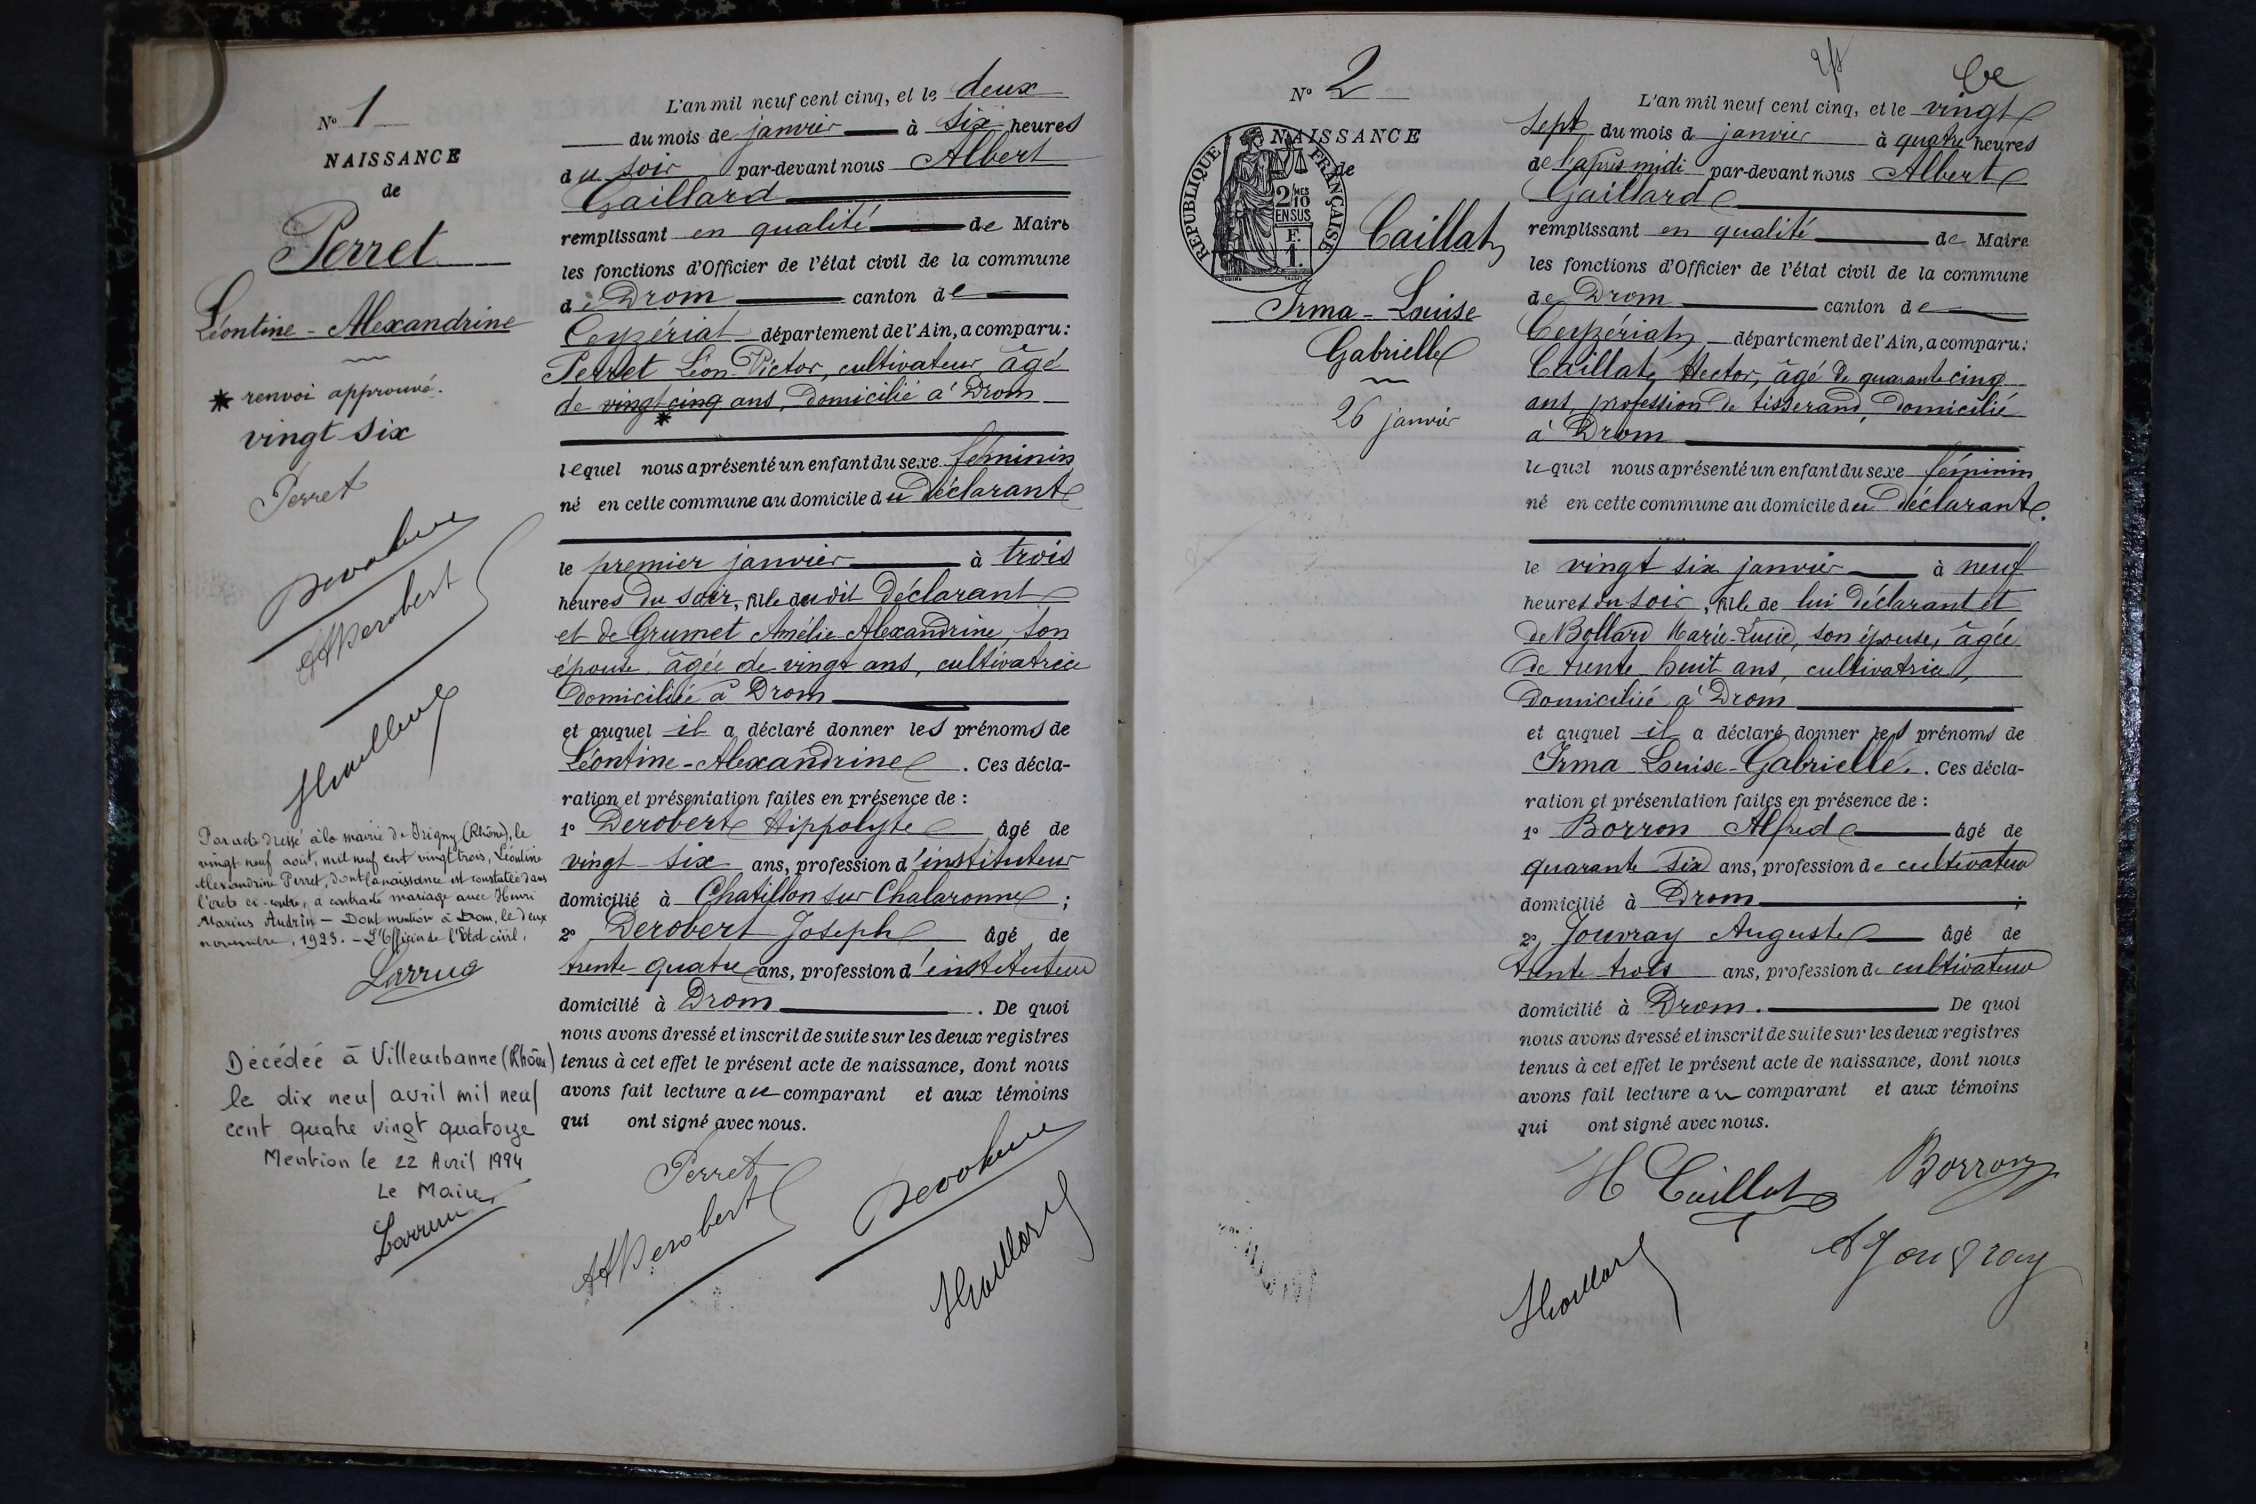 N° 1
NAISSANCE
de
Perret
Léontine - Alexandrine
* renvoi approuvé.
vingt six
Perret
Par acte dressé à la mairie de Irigny (Rhône), le
vingt neuf août, mil neuf cent vingt trois, Léontine
Alexandrine Perret, dont la naissance est constatée dans
l'acte ci-contre, a contracté mariage avec Henri
Marius Audrin — Dont mention à Drom, le deux
novembre, 1923. — L'Officier de l'Etat civil,
Décédée à Villeurbanne (Rhône)
le dix neuf avril mil neuf
cent quatre vingt quatorze
Mention le 22 Avril 1994
Le Maire
L'an mil neuf cent cinq, et le deux
du mois de janvier à six heures
du soir par-devant nous Albert
Gaillard
remplissant en qualité de Maire
les fonctions d'Officier de l'état civil de la commune
de Drom canton de
Ceyzériat département de l'Ain, a comparu:
Perret Léon Victor, cultivateur, âgé
de vingt cinq ans, domicilié à Drom
*
lequel nous a présenté un enfant du sexe féminin
né en cette commune au domicile du déclarant
le premier janvier à trois
heures du soir, fille du dit déclarant
et de Grumet Amélie Alexandrine, son
épouse âgée de vingt ans, cultivatrice
domiciliée à Drom
et auquel il a déclaré donner les prénoms de
Léontine - Alexandrine . Ces décla-
ration et présentation faites en présence de :
1° Derobert Hippolyte âgé de
vingt-six ans, profession d'instituteur
domicilié à Chatillon sur Chalaronne ;
2° Derobert Joseph âgé de
trente quatre ans, profession d'instituteur
domicilié à Drom . De quoi
nous avons dressé et inscrit de suite sur les deux registres
tenus à cet effet le présent acte de naissance, dont nous
avons fait lecture au comparant et aux témoins
qui ont signé avec nous.
Perret
N° 2
NAISSANCE
de
REPUBLIQUE FRANÇAISE
2/10 MES
EN SUS
F.
1.
Caillat
Irma - Louise
Gabrielle
26 janvier
L'an mil neuf cent cinq, et le vingt
sept du mois d janvier à quatre heures
de l'après midi par-devant nous Albert
Gaillard
remplissant en qualité de Maire
les fonctions d'Officier de l'état civil de la commune
de Drom canton de
Ceyzériat, département de l'Ain, a comparu:
Caillat, Hector, âgé de quarante cinq
ans, profession de tisserand, domicilié
à Drom
lequel nous a présenté un enfant du sexe féminin
né en cette commune au domicile du déclarant.
le vingt six janvier à neuf
heures du soir, fille de lui déclarant et
de Bollard Marie-Lucie, son épouse, âgée
de trente huit ans, cultivatrice,
domiciliée à Drom
et auquel il a déclaré donner les prénoms de
Irma Louise-Gabrielle. . Ces décla-
ration et présentation faites en présence de :
1° Borron Alfred âgé de
quarante six ans, profession de cultivateur
domicilié à Drom ;
2° Jouvray Auguste âgé de
trente trois ans, profession de cultivateur
domicilié à Drom. De quoi
nous avons dressé et inscrit de suite sur les deux registres
tenus à cet effet le présent acte de naissance, dont nous
avons fait lecture au comparant et aux témoins
qui ont signé avec nous.
H Caillat
Borron
A Jouvray